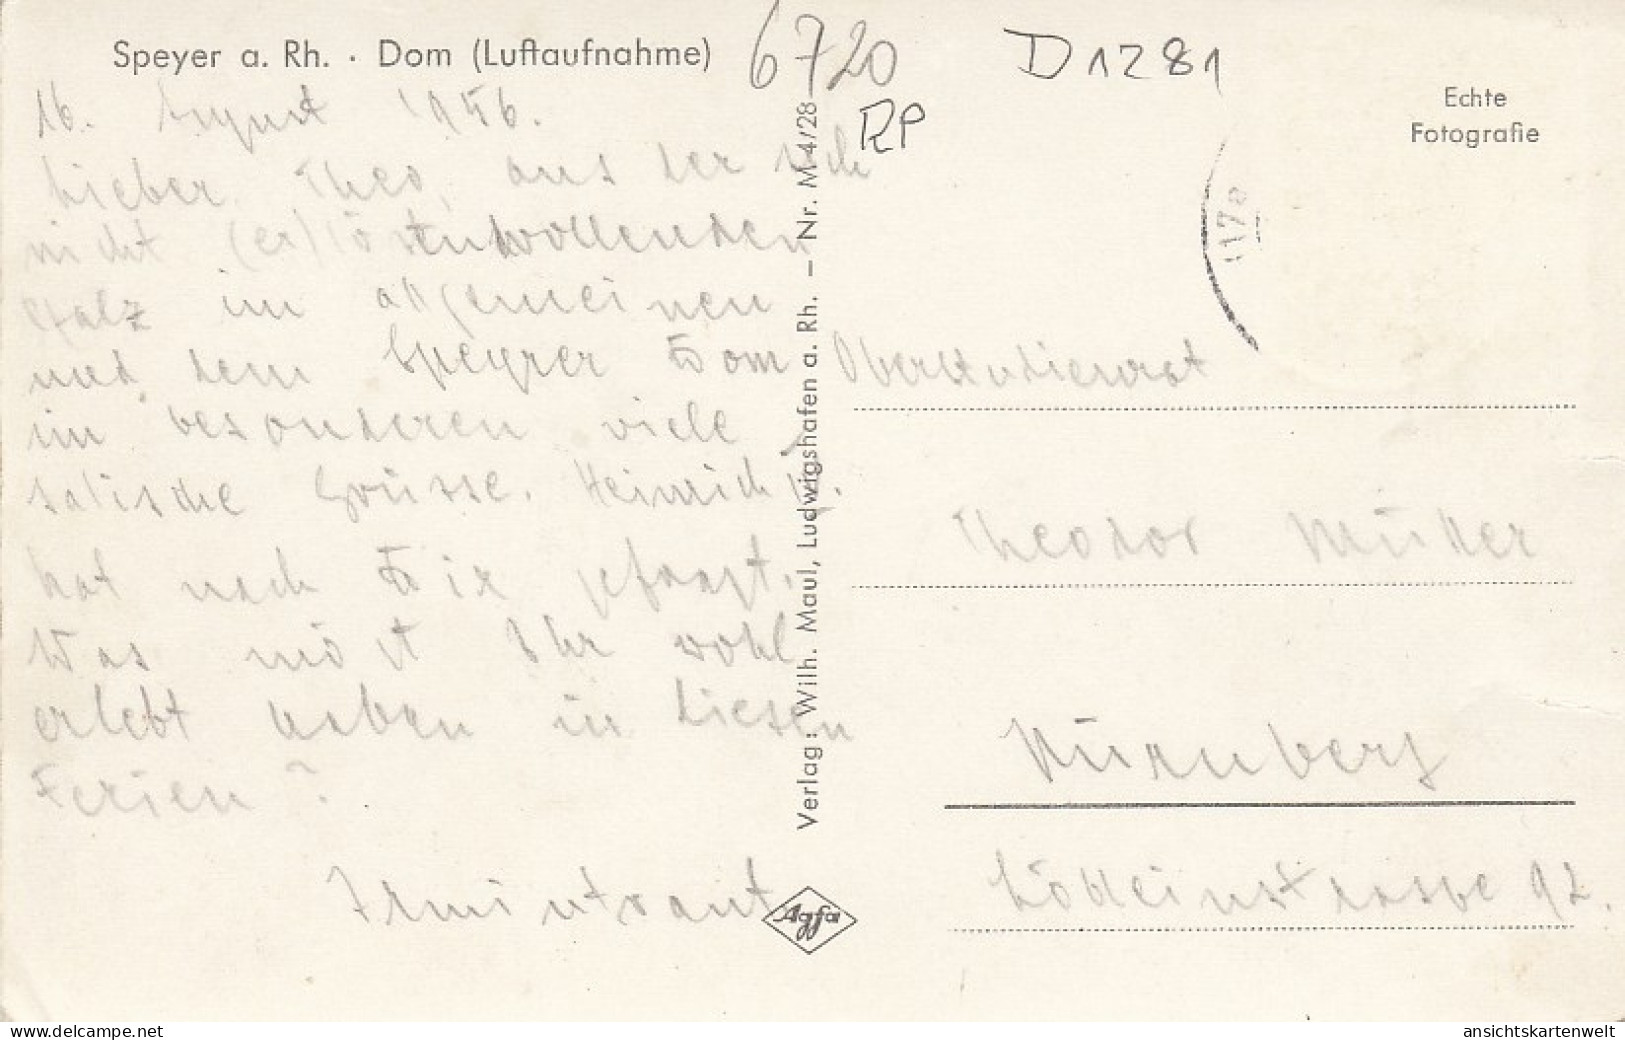 Speyer a. Rh. · Dom (Luftaufnahme)
6720
D1281
RP
Echte
Fotografie
16. August 1956.
Lieber Theo, aus der sich
nicht (er)lösen wollenden
Pfalz im allgemeinen
und dem Speyrer Dom
im besonderen viele
salische Grüsse. Heinrich IV.
hat nach Dir gefragt.
Was mögt Ihr wohl
erlebt haben in diesen
Ferien?
Irmintraut
Verlag: Wilh. Maul, Ludwigshafen a. Rh. – Nr. M 4/28
Agfa
Oberstudienrat
Theodor Müller
Nürnberg
92.
delcampe.net
ansichtskartenwelt